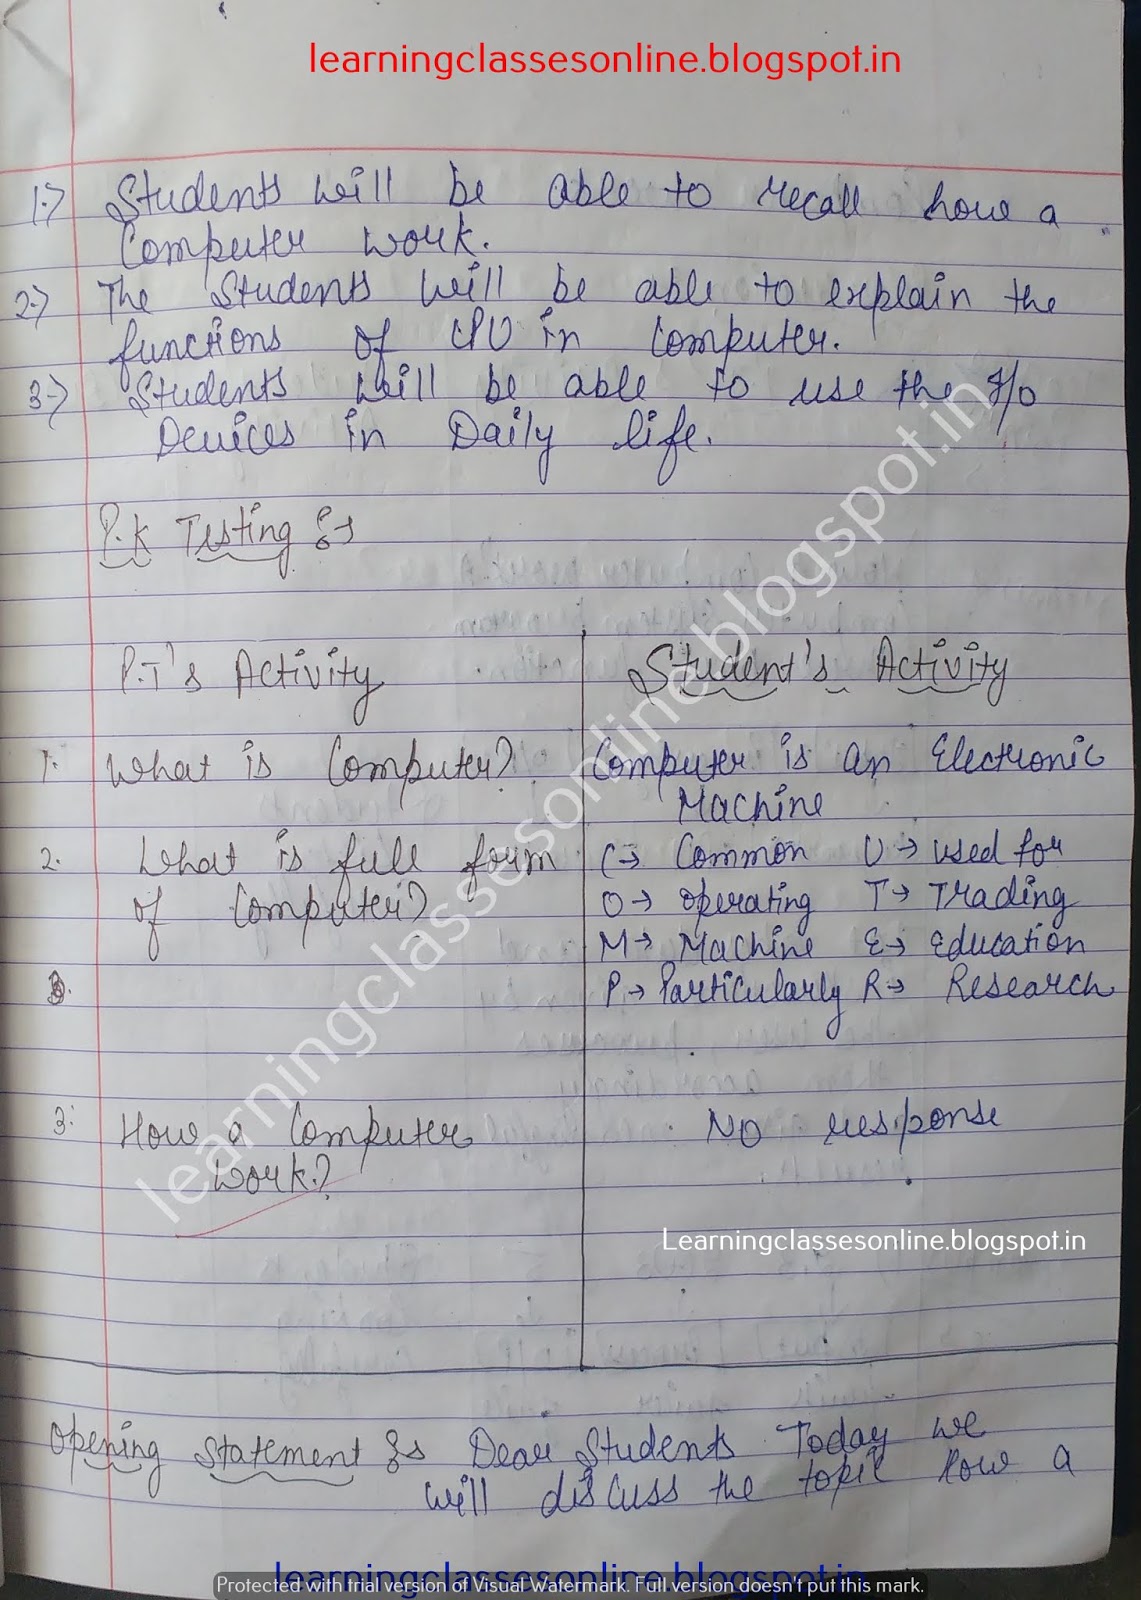 learningclassesonline.blogspot.in
1.) Students will be able to recall how a
Computer work.
2.) The Students will be able to explain the
functions of CPU in Computer.
3.) Students will be able to use the I/O
Devices in Daily life.
P.K Testing :-
P.T's Activity
Student's Activity
1. What is Computer?
Computer is an Electronic
Machine
2. What is full form
of Computer?
C→ Common U→ used for
O→ operating T→ Trading
M→ Machine E→ Education
P→ Particularly R→ Research
3.
3. How a Computer
work?
No response
learningclassesonline.blogspot.in
Learningclassesonline.blogspot.in
Opening Statement :- Dear Students Today we
will discuss the topic how a
learningclassesonline.blogspot.in
Protected with trial version of Visual Watermark. Full version doesn't put this mark.